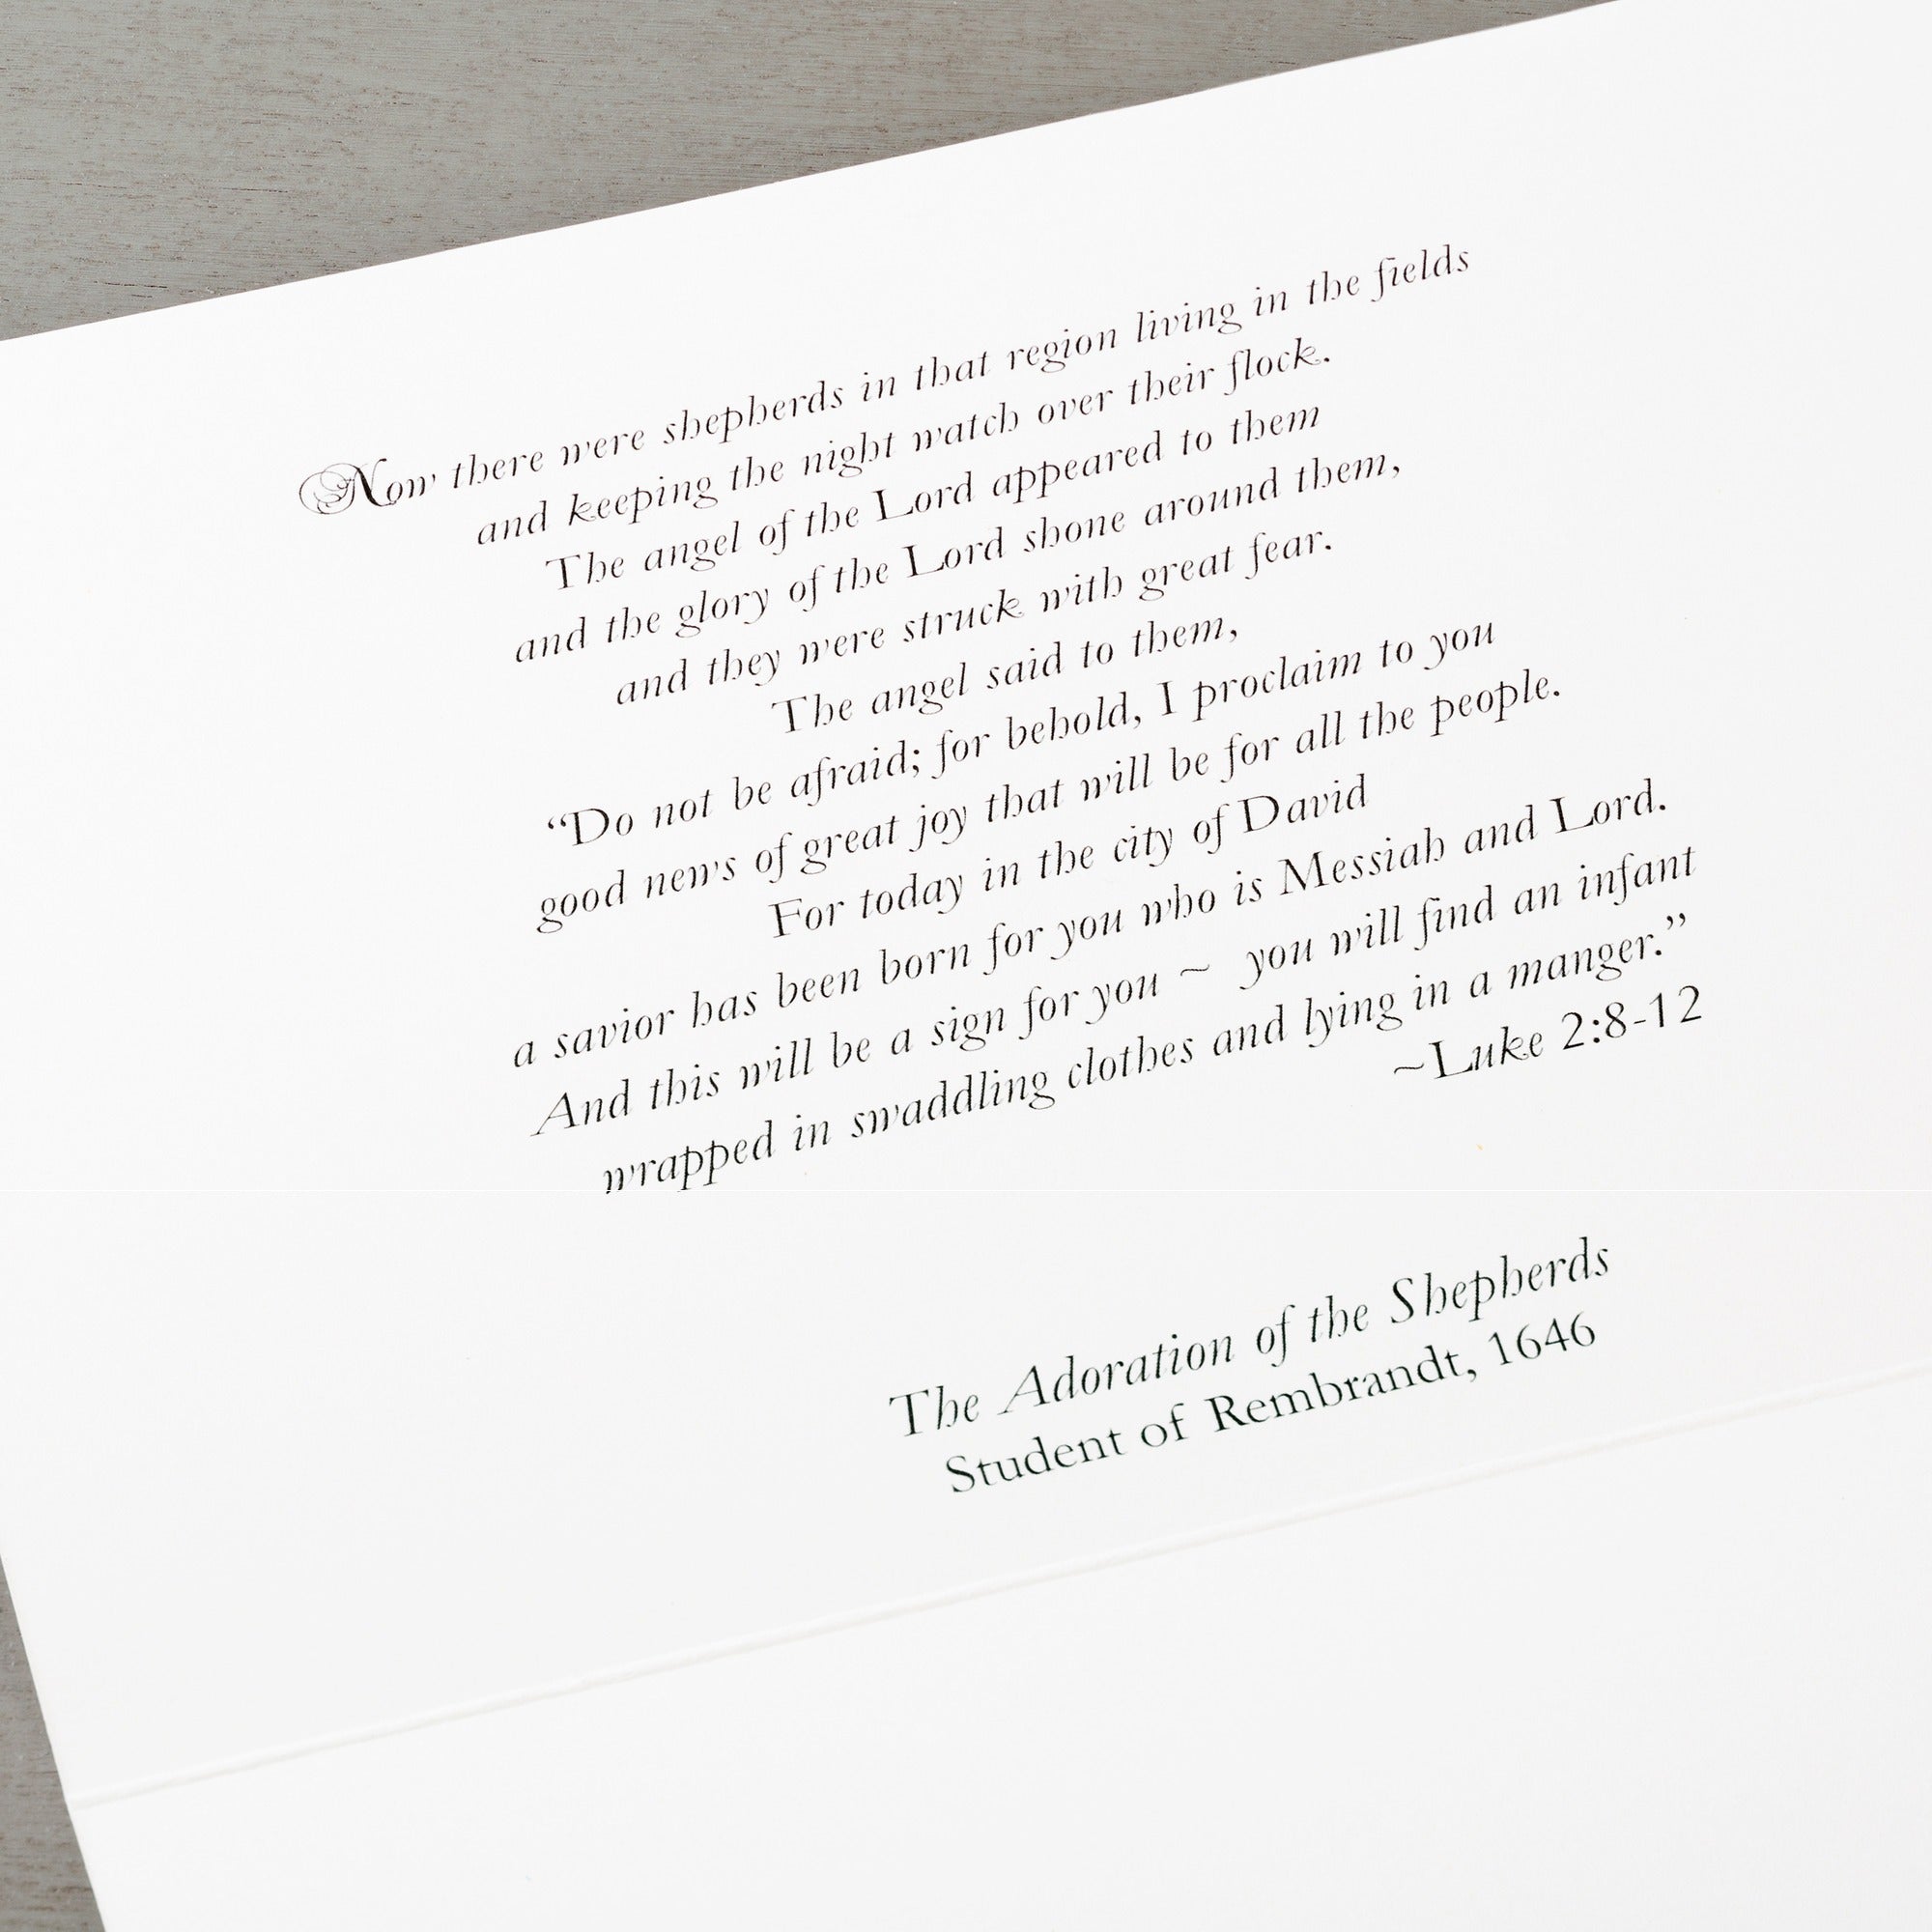 Now there were shepherds in that region living in the fields
and keeping the night watch over their flock.
The angel of the Lord appeared to them
and the glory of the Lord shone around them,
and they were struck with great fear.
The angel said to them,
“Do not be afraid; for behold, I proclaim to you
good news of great joy that will be for all the people.
For today in the city of David
a savior has been born for you who is Messiah and Lord.
And this will be a sign for you ~ you will find an infant
wrapped in swaddling clothes and lying in a manger.”
~Luke 2:8-12
The Adoration of the Shepherds
Student of Rembrandt, 1646